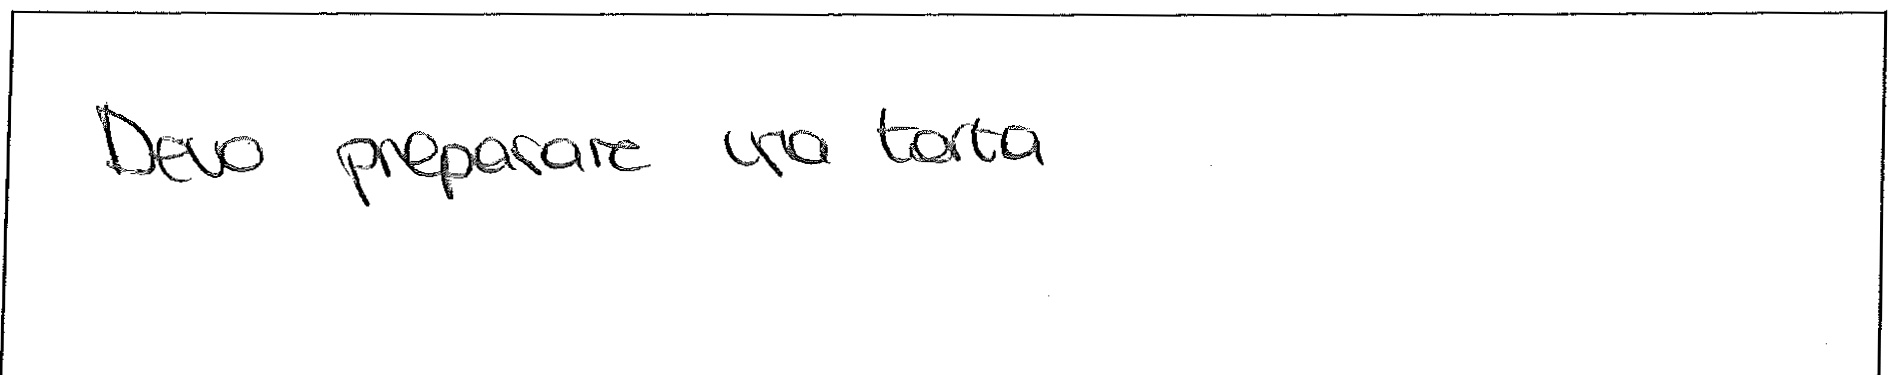 Devo preparare una torta